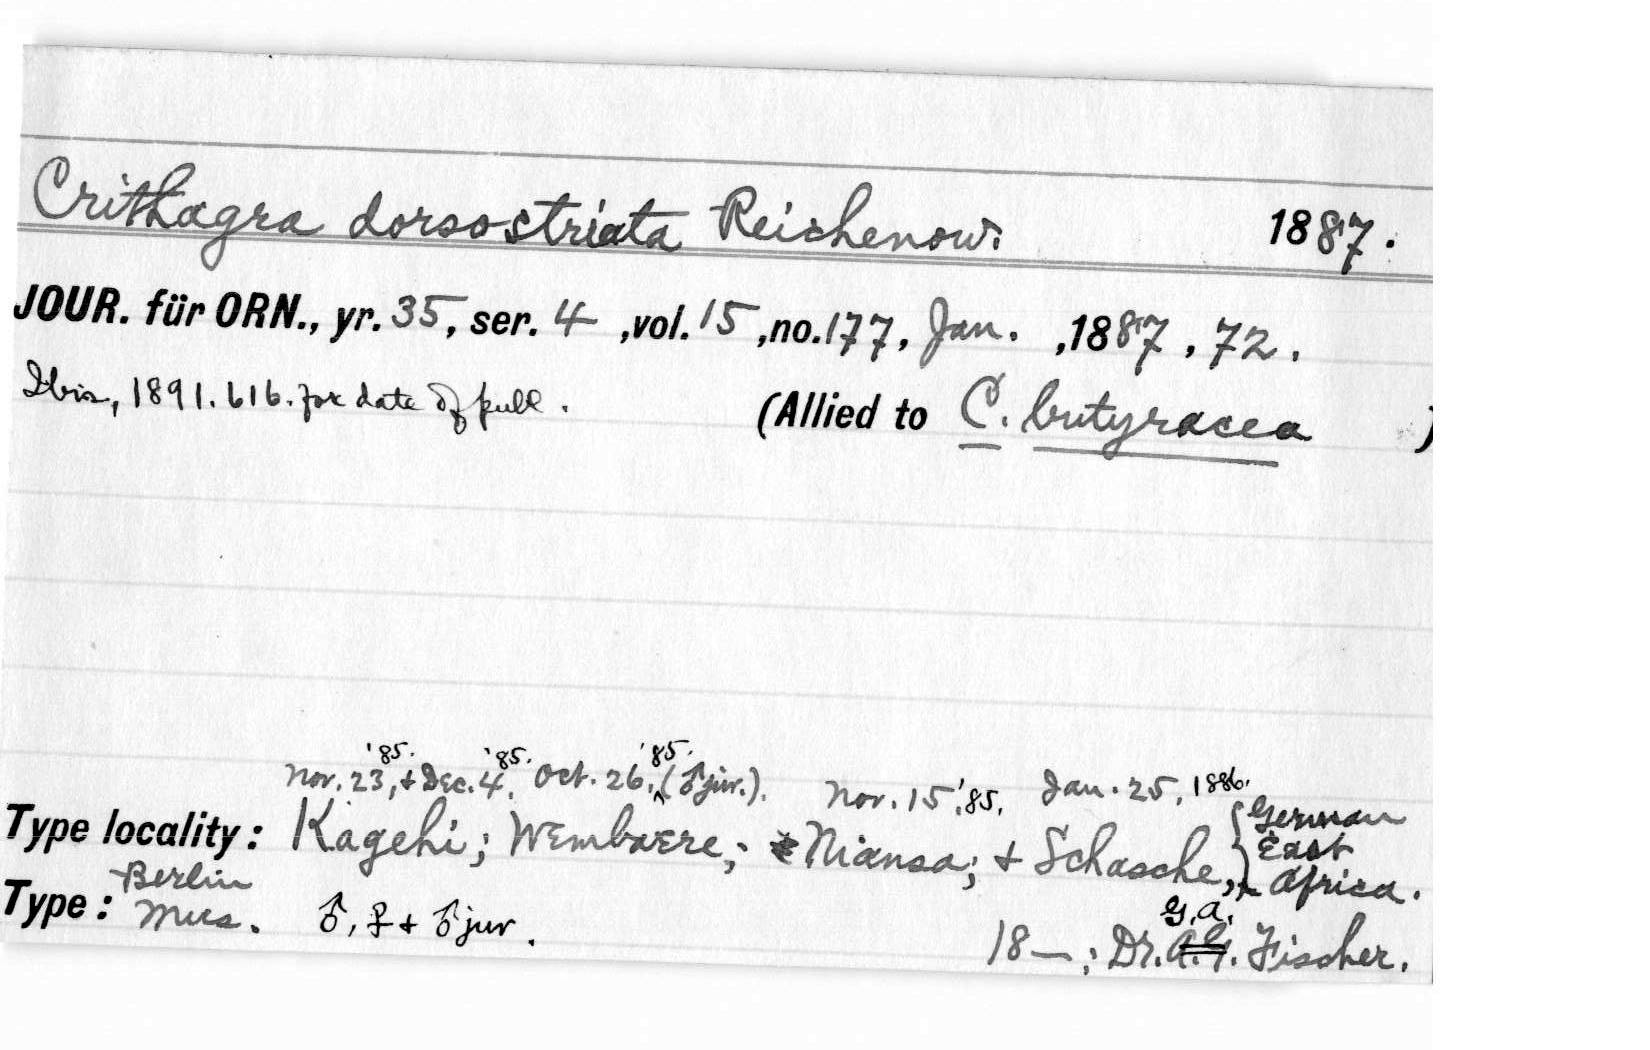 Crithagra dorsostriata Reichenow. 1887.
JOUR. für ORN., yr. 35, ser. 4, vol. 15, no. 177, Jan. , 1887, 72.
Ibis, 1891. 616. for date of publ. (Allied to C. butyracea )
'85. '85. '85.
Nov. 23, + Dec. 4, Oct. 26, (♂ jur.). Nov. 15, '85, Jan. 25, 1886.
Type locality: Kagehi; Wembaere; Niansa; + Schasche, { German
East
Africa.
Type: Berlin
Mus. ♂, ♀ + ♂ jur.
G.A.
18—; Dr. A.G. Fischer.